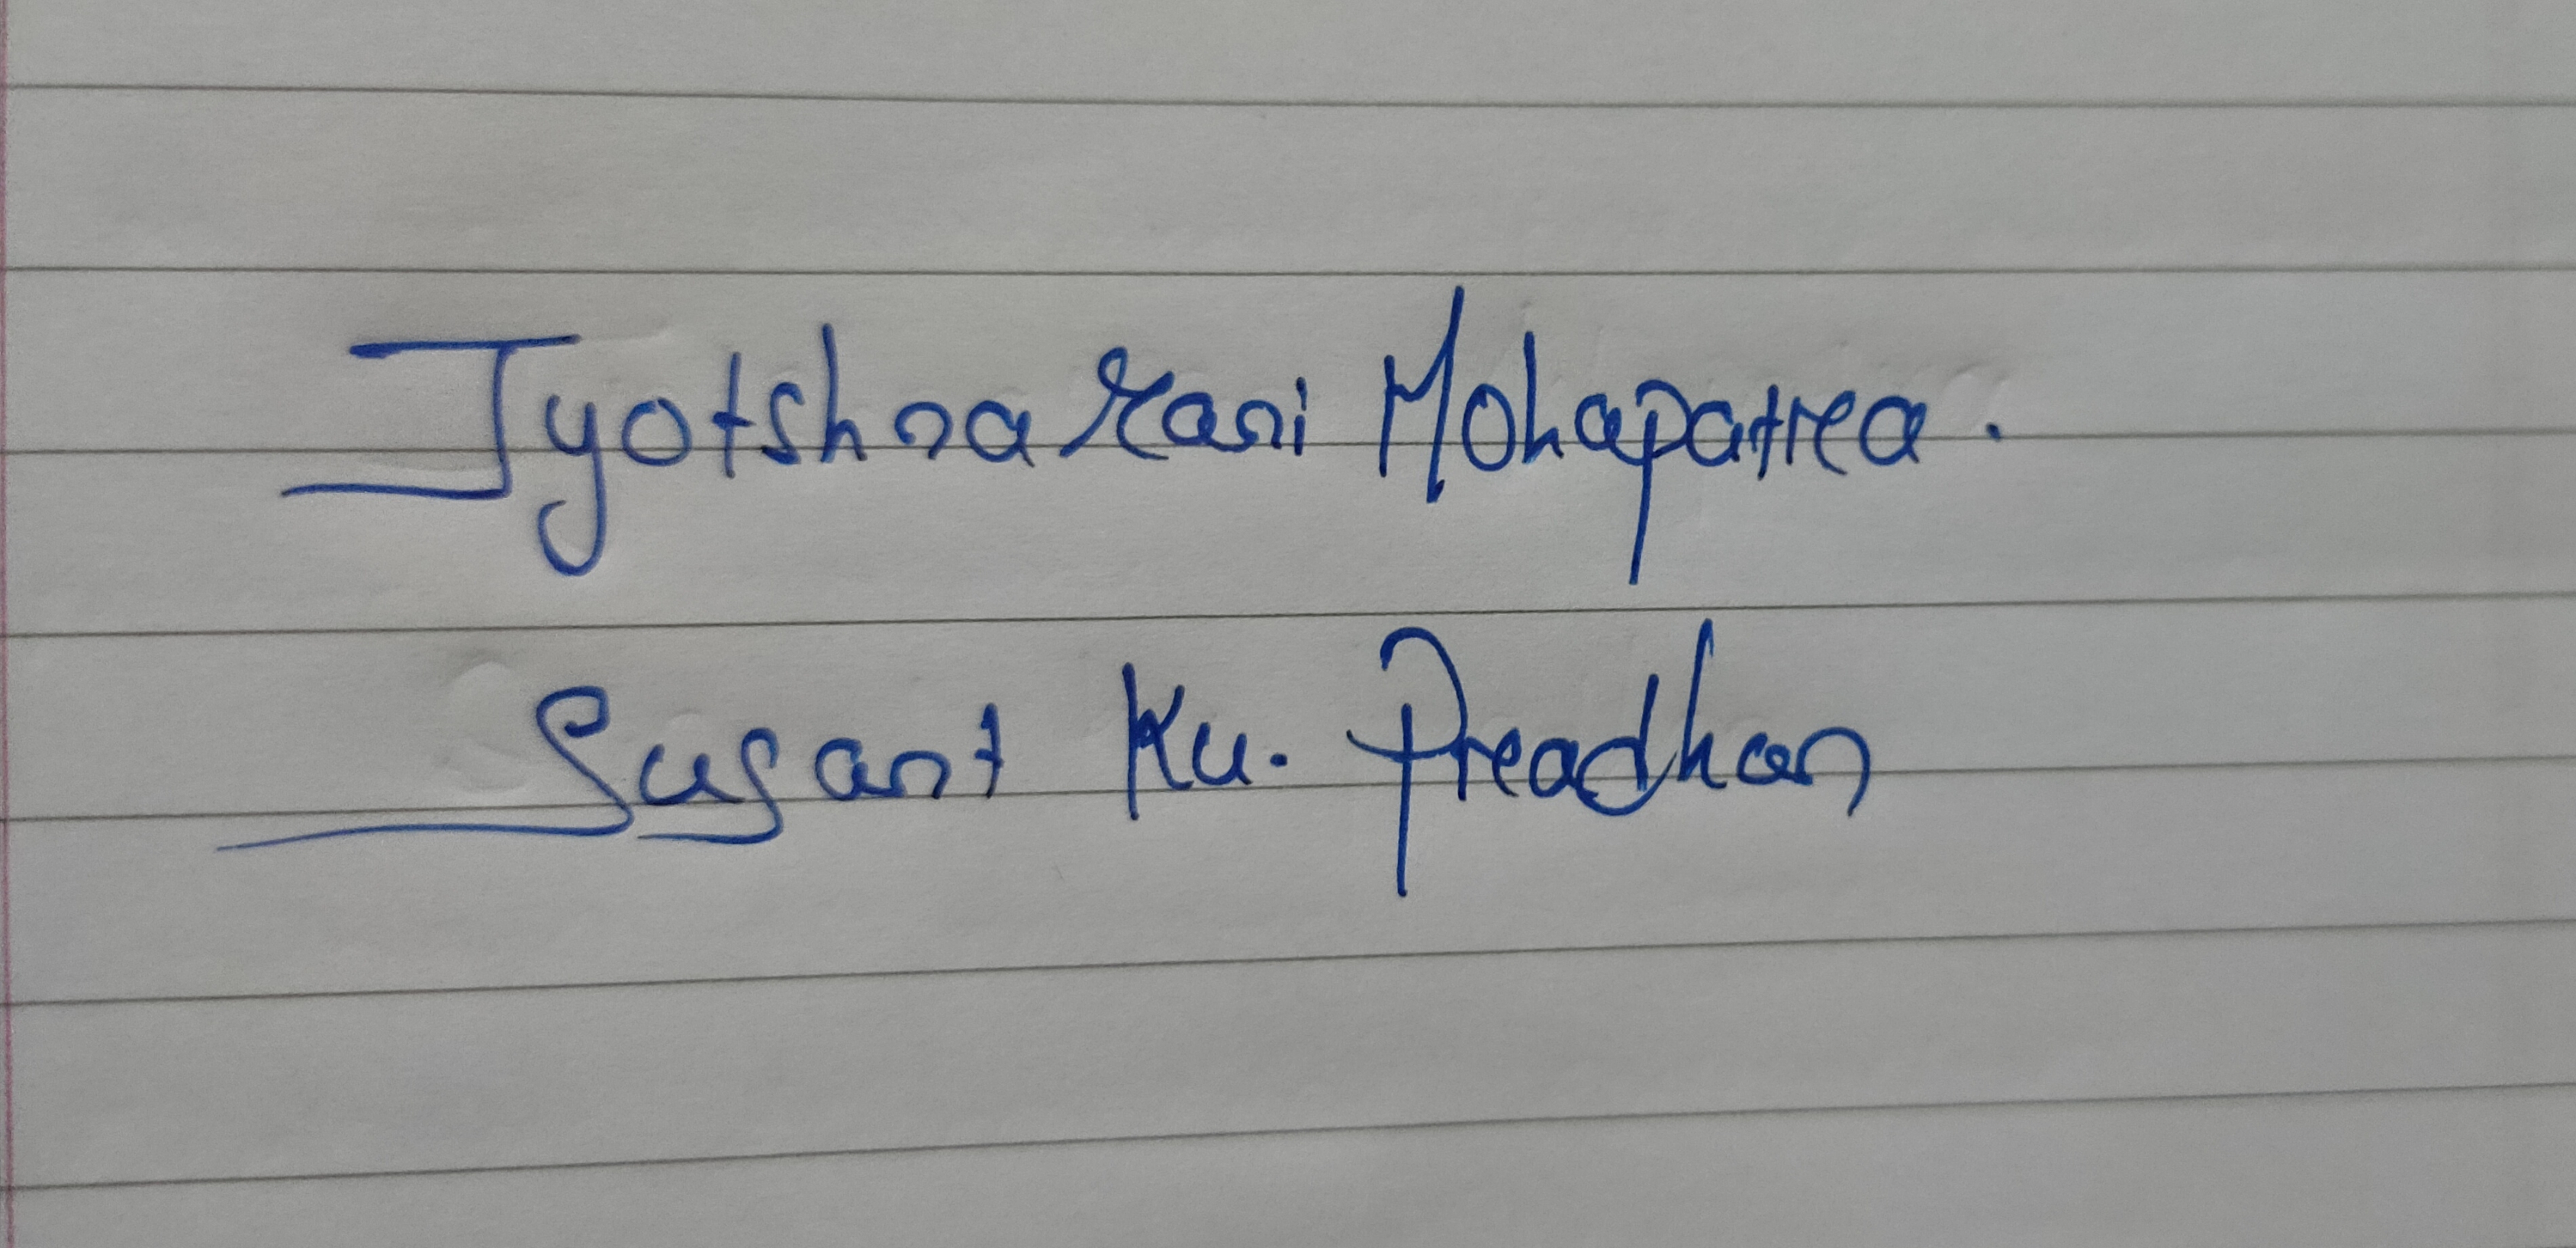 Jyotshna rani Mohapatra.
Susant Ku. Pradhan